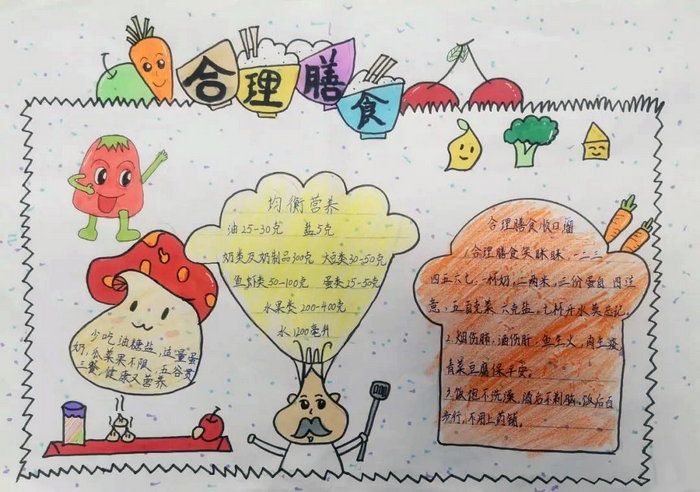 合理膳食
均衡营养
油25-30克 盐5克
奶类及奶制品300克 大豆类30-50克
鱼虾类50-100克 蛋类25-50克
水果类200-400克
水1200毫升
少吃油糖盐,适量蛋
奶,瓜菜果不限,五谷
三餐,健康又营养
合理膳食顺口溜
1合理膳食笑眯眯,一二三
四五六七,一杯奶,二两米,三份蛋白四注
意,五百克菜六克盐,七杯开水莫忘记。
2.烟伤肺,酒伤肝,鱼生火,肉生痰
青菜豆腐保平安。
3.饭但不洗澡,酒后不剃脑。饭后百
步行,不用上药铺。